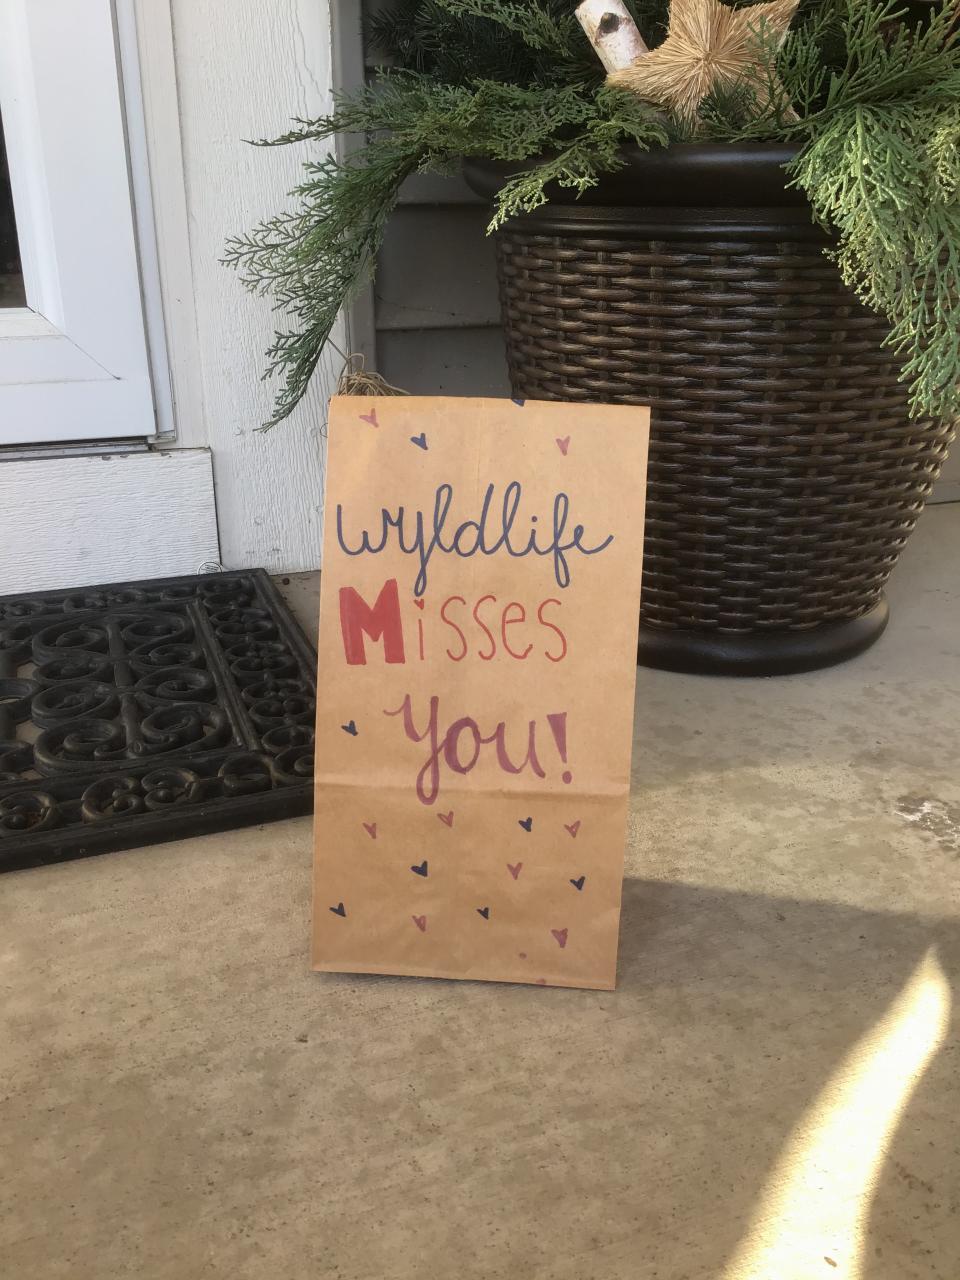 wyldlife
Misses
You!